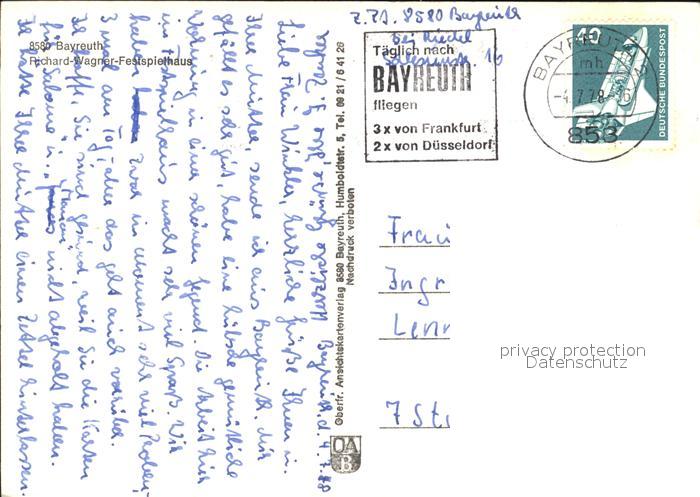 8580 Bayreuth
Richard-Wagner-Festspielhaus
Z.ZT. 8580 Bayreuth
bei Riedel
16
Täglich nach
BAYREUTH
fliegen
3x von Frankfurt
2x von Düsseldorf
BAYREUTH
mh
-4.7.78-16
853
40
DEUTSCHE BUNDESPOST
Bayreuth, d. 4.7.78
Liebe Frau Winkler, herzliche Grüße Ihnen u.
Ihrer Mutter sende ich aus Bayreuth. Mir
gefällt es sehr gut, habe eine hübsche gemütliche
Wohnung in einer schönen Gegend. Die Arbeit hier
im Festspielhaus macht sehr viel Spaß. Wir
haben zwar im Moment sehr viel Proben,
3 mal am Tag, aber das geht auch vorüber.
Ich hoffe, Sie sind gesund, weil Sie die Karten
für Salome u. nicht abgeholt haben.
Ich hatte Ihrer Mutter einen Zettel hinterlassen.
Oberfr. Ansichtskartenverlag 8580 Bayreuth, Humboldtstr. 5, Tel. 0921/64126
Nachdruck verboten
OA
B
Frau
Ingr
Lenr
7 St
privacy protection
Datenschutz